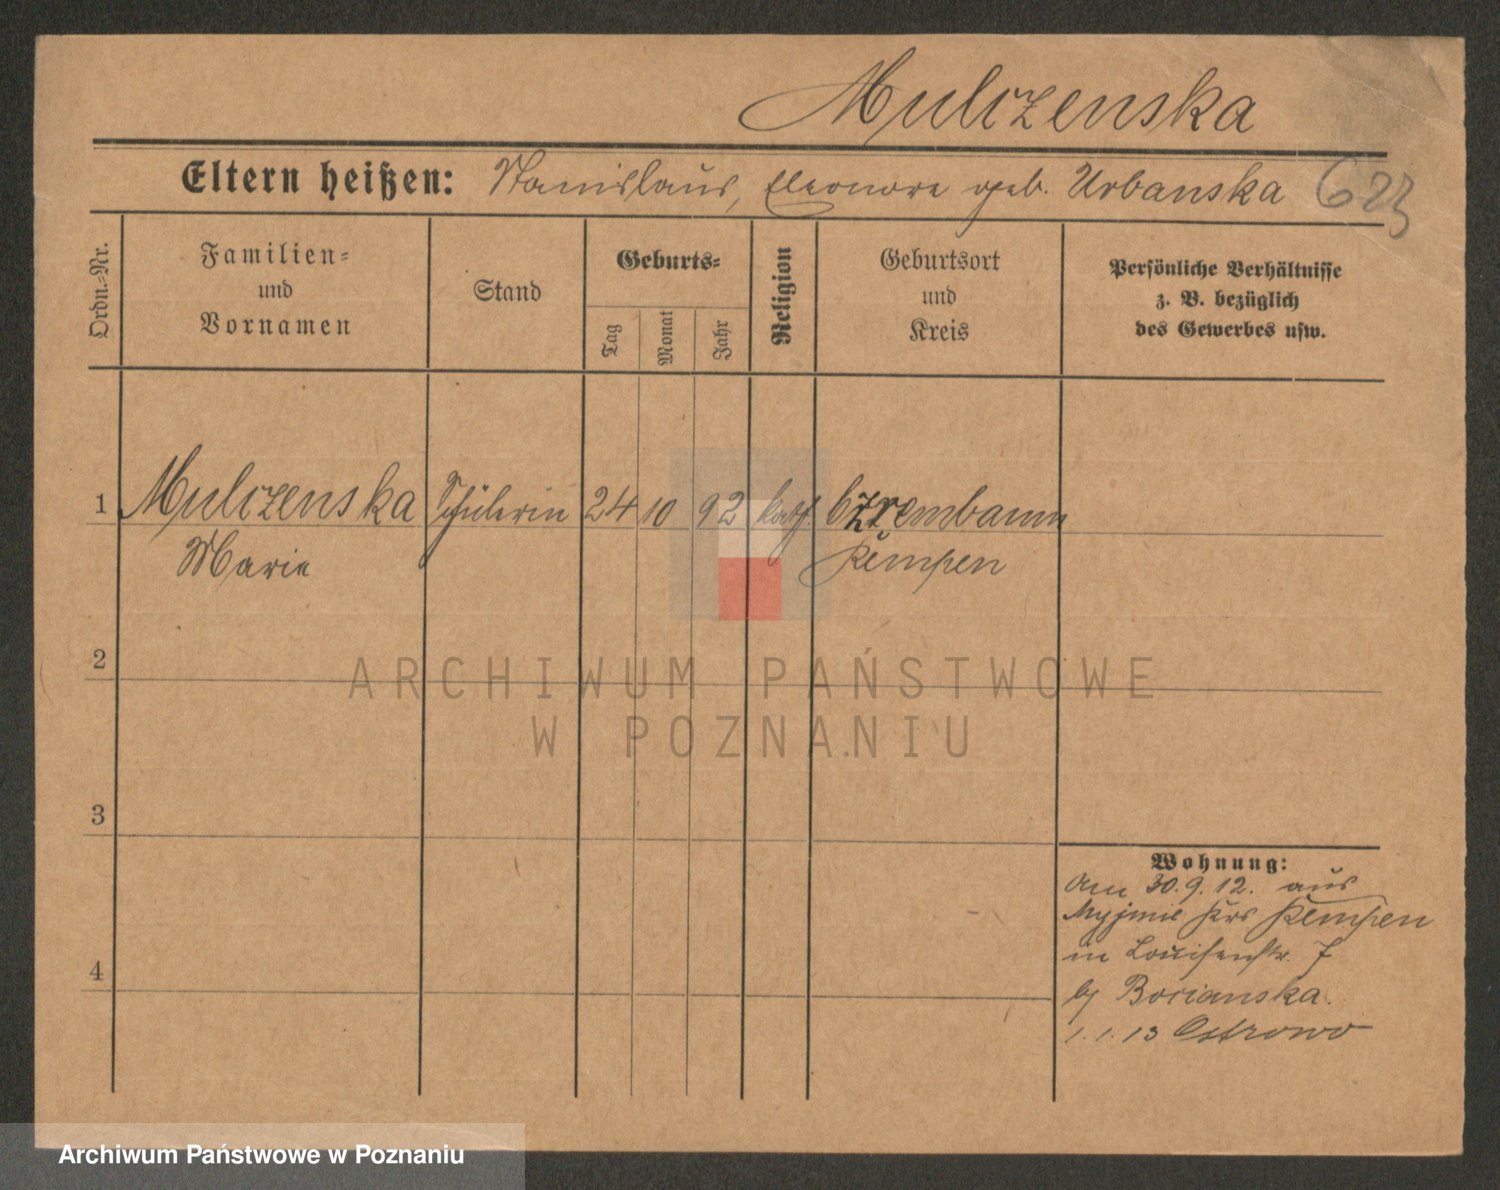 Mulczenska
Eltern heißen: Stanislaus, Eleonore geb. Urbanska 623
Ordn.-Nr.
Familien- und Vornamen
Stand
Geburts-
Tag
Monat
Jahr
Religion
Geburtsort und Kreis
Persönliche Verhältnisse z. B. bezüglich des Gewerbes usw.
1 Mulczenska Schülerin 24 10 92 kath.
Marie Kempen
2
ARCHIWUM PAŃSTWOWE
W POZNANIU
3
Wohnung:
Am 30.9.12. aus
Krs Kempen
4
in Louisenstr. 7
b/ Bocianska.
1.1.13 Ostrowo
Archiwum Państwowe w Poznaniu